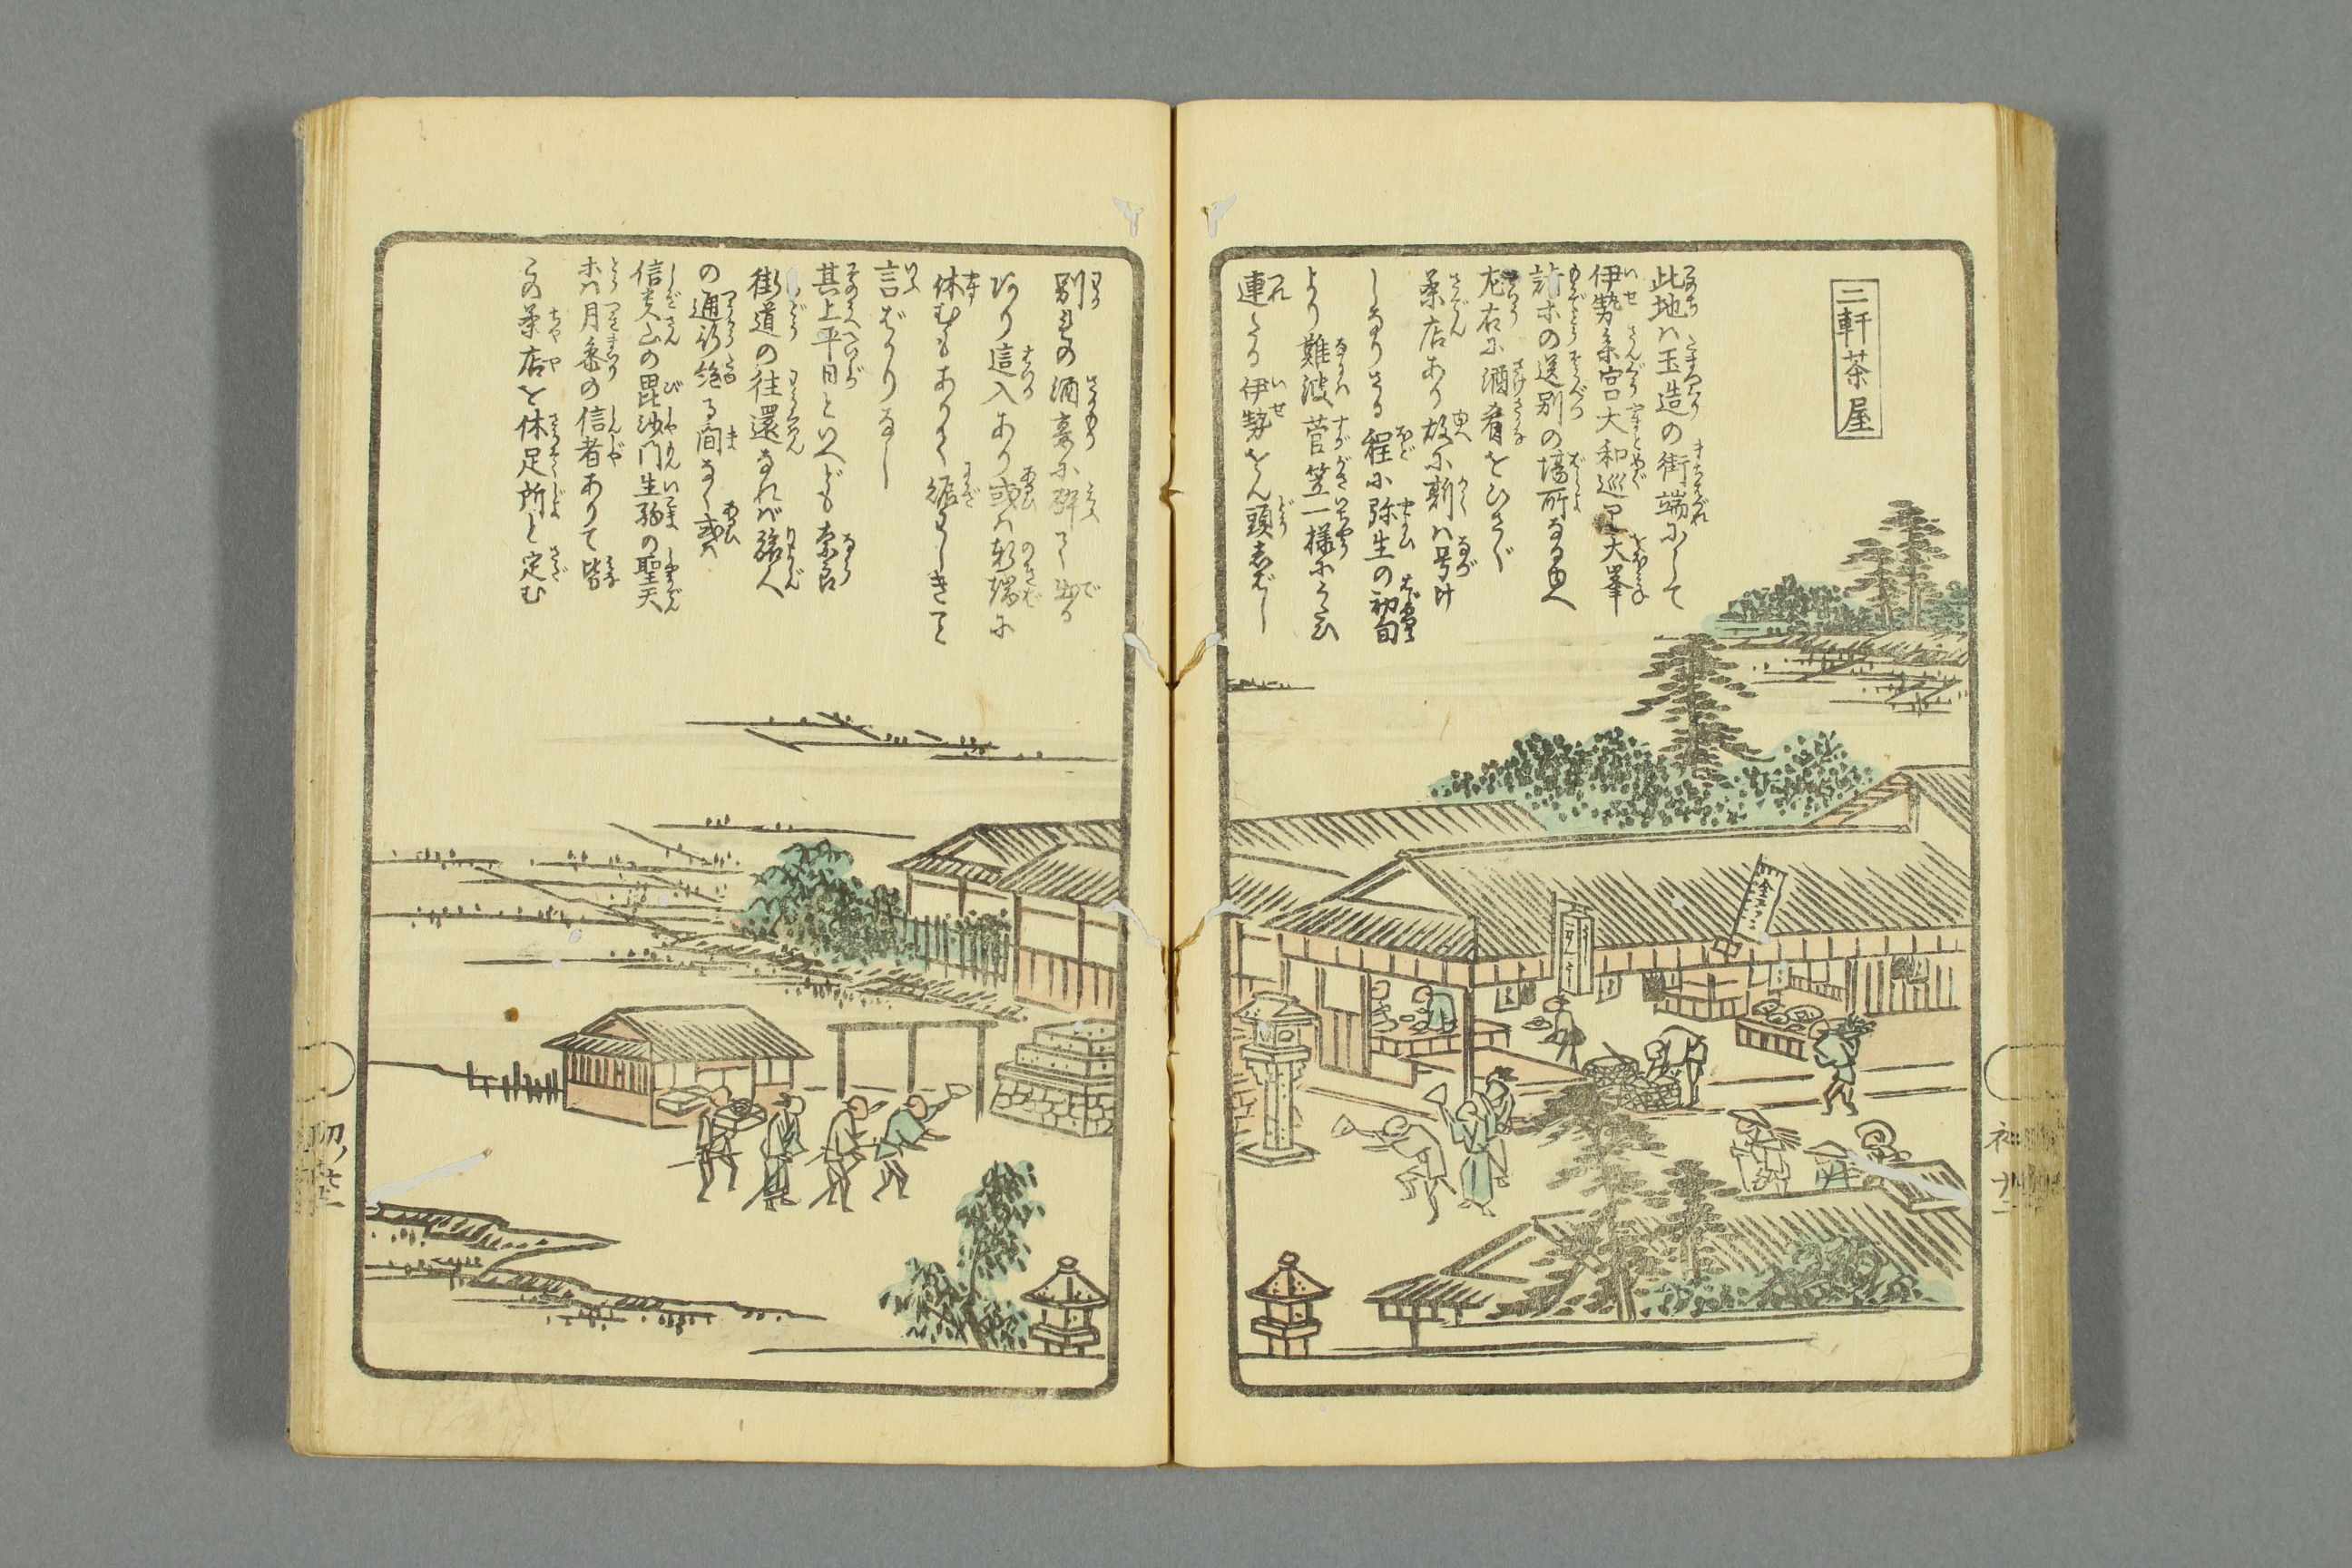 二軒茶屋
此地ハ玉造の街端にして
伊勢参宮大和巡り大峯
詣ホの送別の場所なる由へ
左右に酒肴をひさぐ
茶店あり故に斯ハ号け
しなりさる程に弥生の初旬
より難波菅笠一様にうたひ
連たる伊勢をん頭
別れの酒宴に酔て出る
あり這入あり或ハ軒端に
休むもありて
言ばかりなし
其上平日といへども奈良
街道の往還なれバ旅人
の通行絶る間なく或ハ
信貴山の毘沙門生駒の聖天
ホハ月参の信者ありて皆
この茶店を休足所と定む